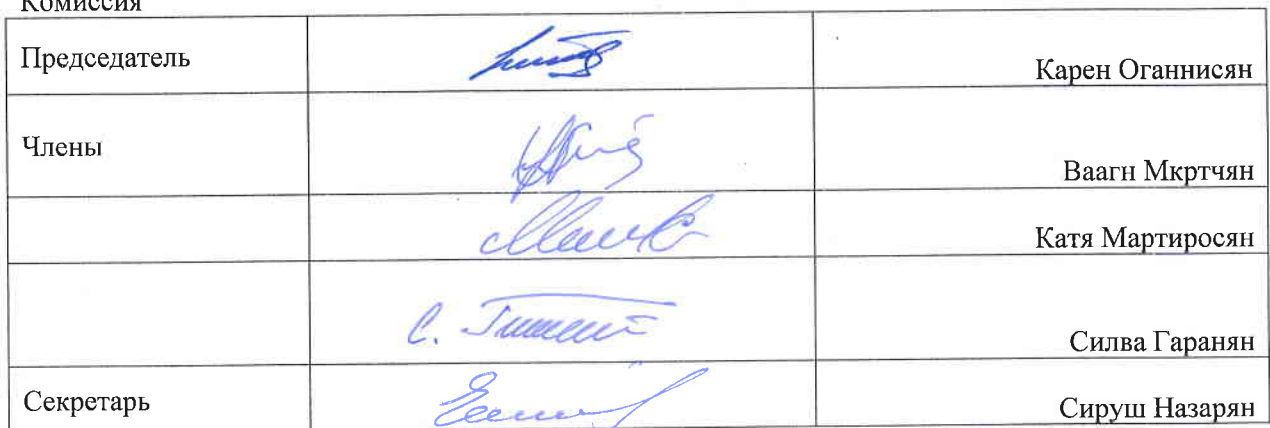 Комиссия
Председатель Карен Оганнисян
Члены Ваагн Мкртчян
Катя Мартиросян
С. Силва Гаранян
Секретарь Сируш Назарян